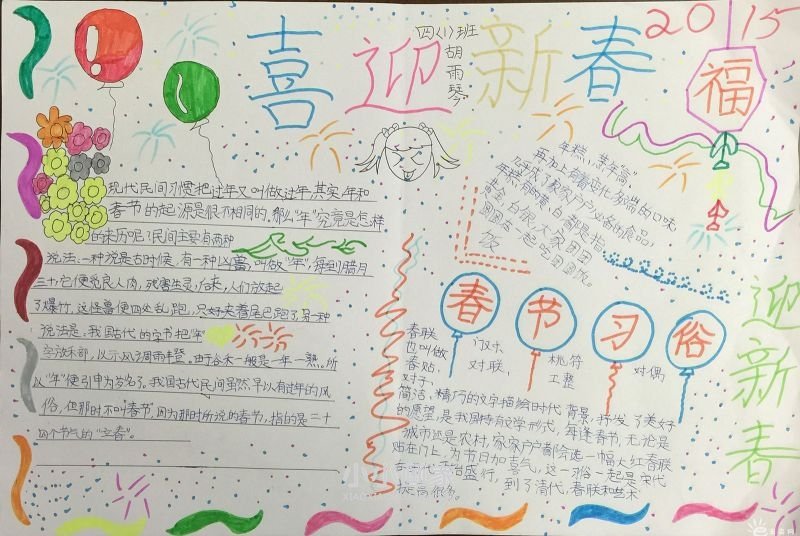 喜迎新春
2015
四(1)班
胡雨琴
福
现代民间习惯把过年又叫做过年,其实,年和
春节的起源是很不相同的。那么"年"究竟是怎样
的来历呢?民间主要有两种
说法:一种说是古时候,有一种凶兽叫做"年",每到腊月
三十,它便觅良人肉,残害生灵,后来,人们放起
了爆竹,这怪兽便四处乱跑,只好夹着尾巴跑了。另一种
说法是,我国古代的字书把"年"
字放禾部,以示风调雨丰登。由于谷禾一般是一年一熟。所
以"年"便引申为岁名了。我国古代民间虽然早以有过年的风
俗,但那时不叫春节。因为那时所说的春节,指的是二十
四个节气的"立春"。
年糕,某"年高",
再加上有着变化多端的口味,
几乎成了家家户户必备的食品,
年糕有黄、白,都是指
黄金、白银,大家团团
圆圆在一起吃团圆饭。
饭
春节习俗
春联
也叫做
春贴、
对子,
门对、
对联、
桃符
工整
对偶
简洁、精巧的文字描绘时代背景,抒发了美好
的愿望,是我国特有文学形式,每逢春节,无论是
城市还是农村,家家户户都会选一幅大红春联
贴在门上,为节日加喜气,这一习俗起是宋代
在明代开始盛行,到了清代,春联和艺术
提高很多。
迎新春